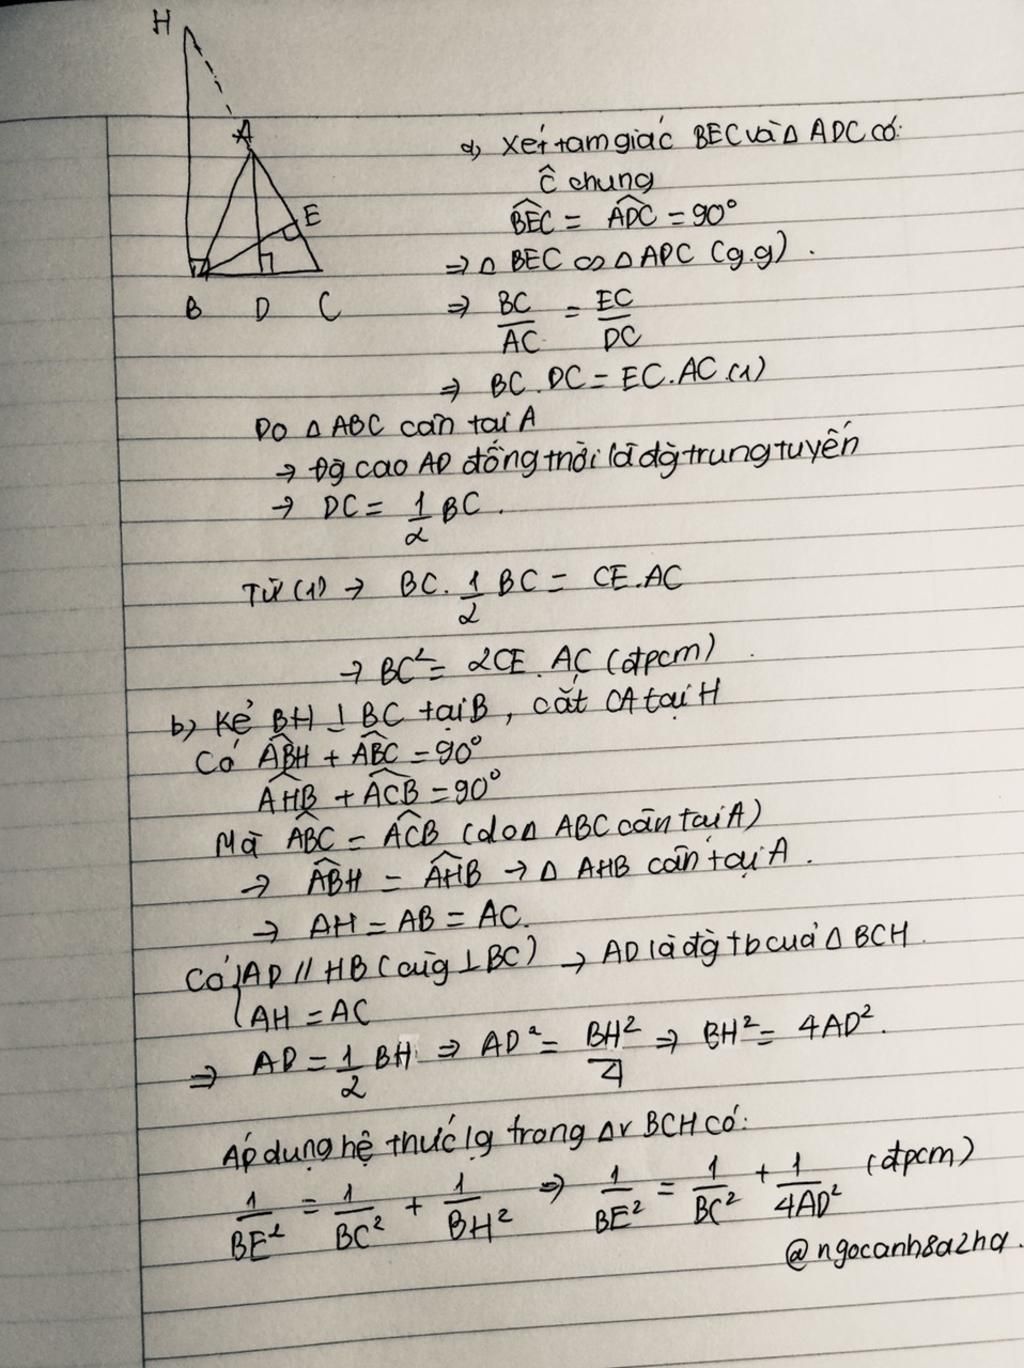 H
A
E
B D C
a, Xét tam giác BEC và Δ ADC có:
Ĉ chung
BEC = ADC = 90°
⇒ Δ BEC ∽ Δ ADC (g.g).
⇒ BC/AC = EC/DC
⇒ BC.DC = EC.AC (1)
Do Δ ABC cân tại A
→ Đg cao AD đồng thời là đg trung tuyến
→ DC = 1/2 BC.
Từ (1) → BC. 1/2 BC = CE.AC
→ BC² = 2CE.AC (đpcm)
b, Kẻ BH ⊥ BC tại B, cắt CA tại H
Có ABH + ABC = 90°
AHB + ACB = 90°
Mà ABC = ACB (do Δ ABC cân tại A)
→ ABH = AHB → Δ AHB cân tại A.
→ AH = AB = AC.
Có { AD // HB (cùg ⊥ BC) → AD là đg tb của Δ BCH.
AH = AC
⇒ AD = 1/2 BH ⇒ AD² = BH²/4 ⇒ BH² = 4AD².
Áp dụng hệ thức lg trong Δv BCH có:
1/BE² = 1/BC² + 1/BH² ⇒ 1/BE² = 1/BC² + 1/4AD² (đpcm)
@ngocanh8a2hq.